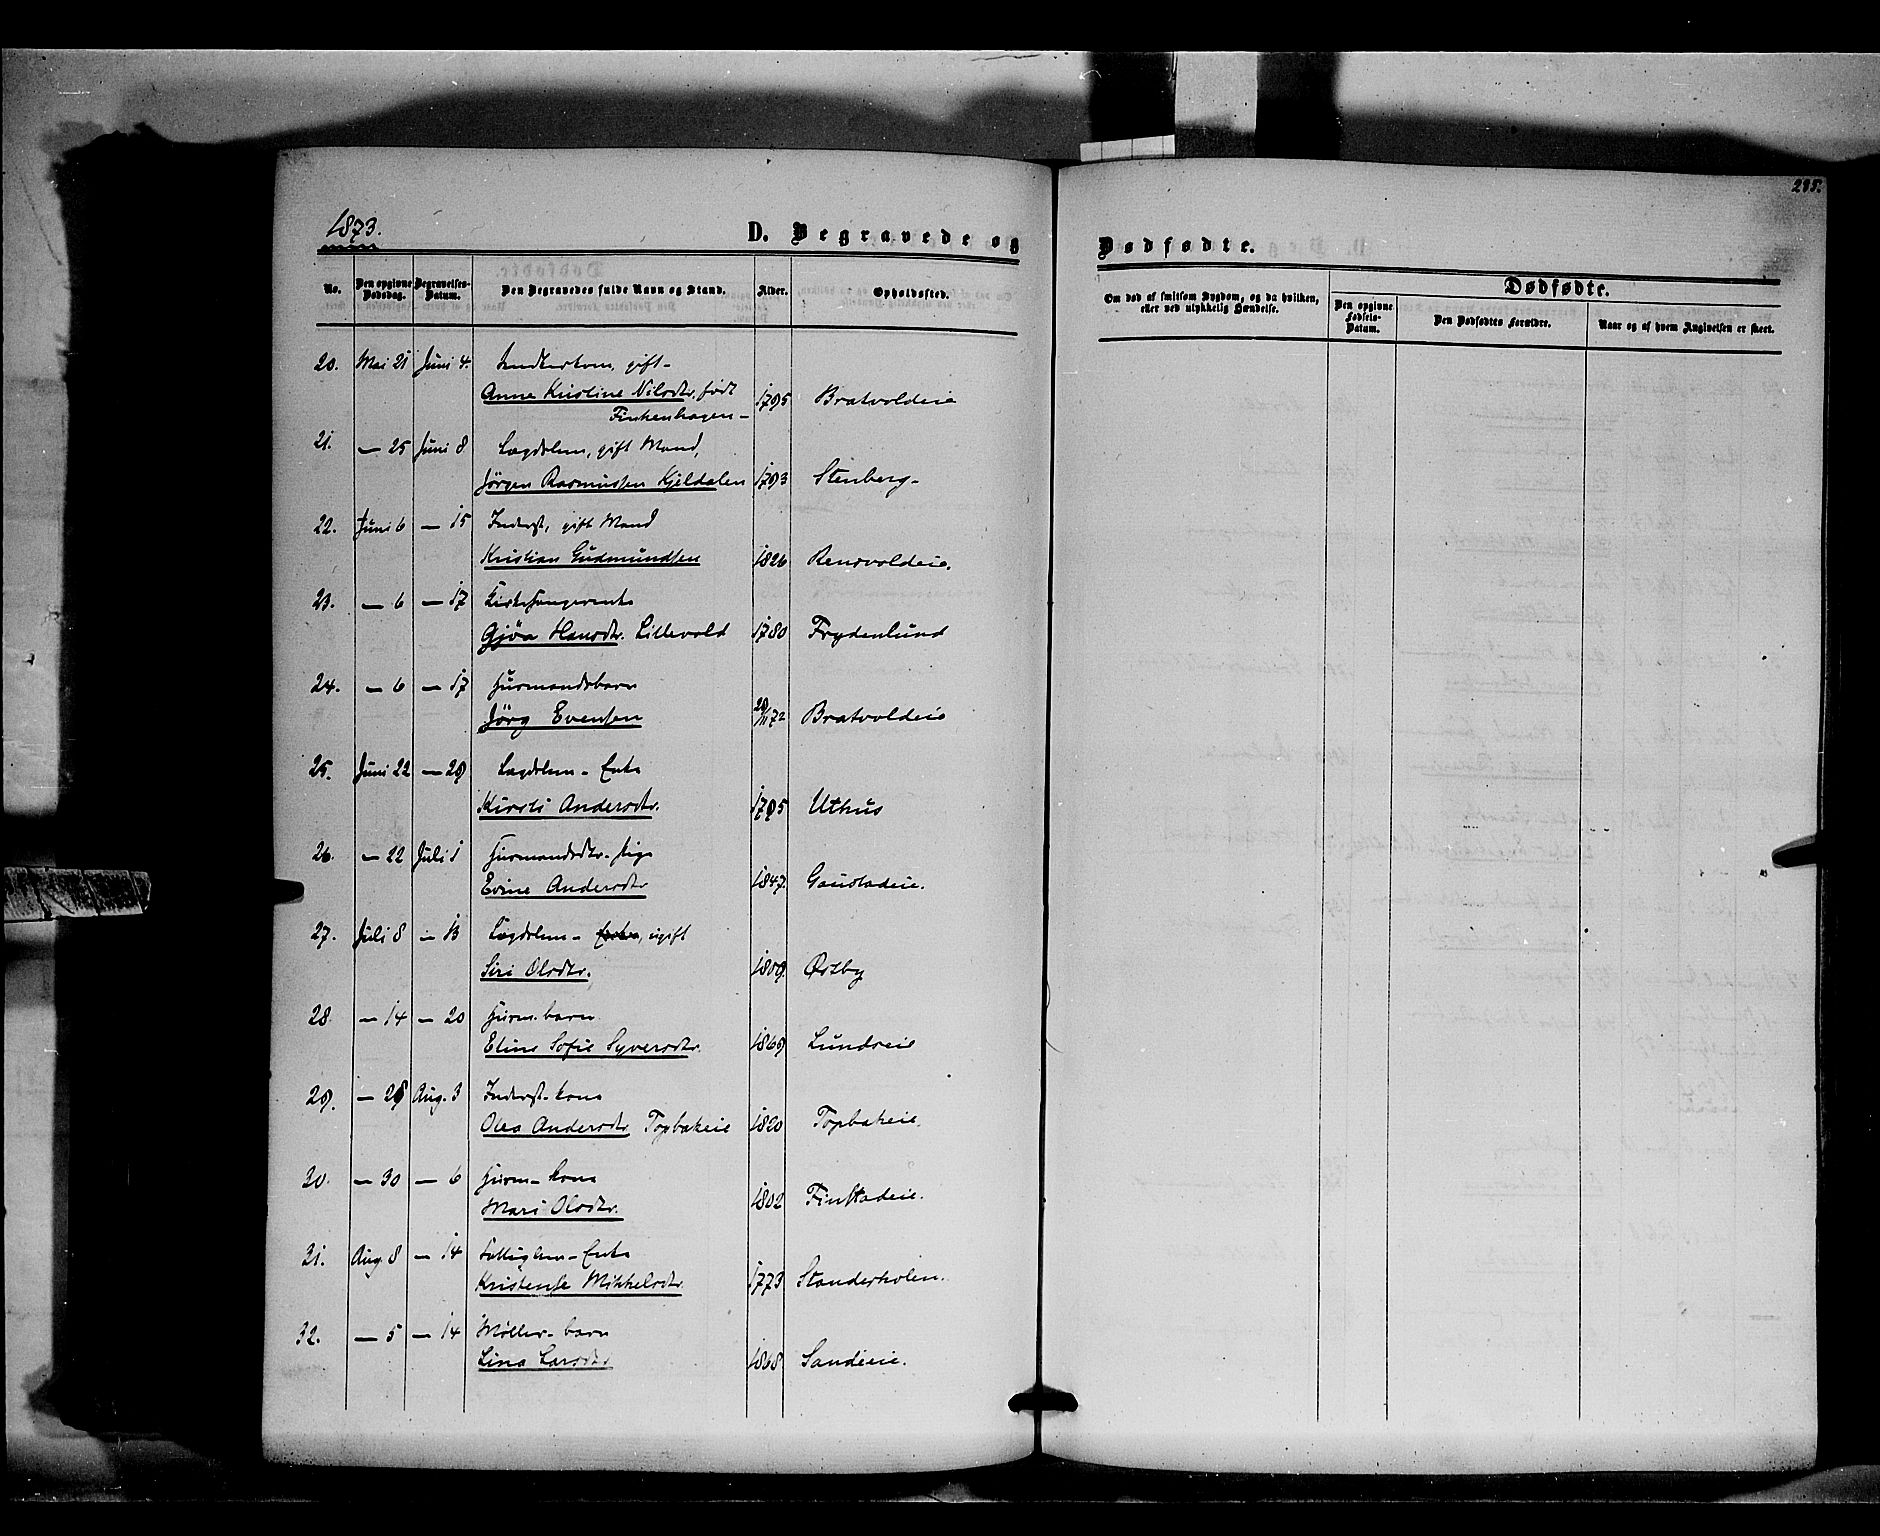 1873.
D. Begravede og
Dødfødte.
295.
No.
Den opgivne Dødsdag.
Begravelses-Datum.
Den Begravedes fulde Navn og Stand.
Alder.
Opholdssted.
Om død af smitsom Sygdom, og da hvilken, eller ved ulykkelig Hændelse.
Dødfødte.
Den opgivne Fødsels-Datum.
Den Dødfødtes Forældre.
Naar og af hvem Angivelsen er skeet.
20. Mai 21 Juni 4. gift-
Anne Kristine Nilsdtr. født 1795 Bratvoldeie
Finkenhagen-
21. — 25 Juni 8 Lægdslem, gift Mand,
Jörgen Rasmussen Kjeldalen 1793 Stenberg-
22. Juni 6 — 15 Inderst, gift Mand
Kristian Gudmundsen 1826 Rensvoldeie.
23. — 6 — 17 Kirkesangerenke
Gjöa Hansdtr. Lillevold 1780 Frydenlund
24. — 6 — 17 Husmandsbarn
Jörg Evensen 29/11 72 Bratvoldeie
25. Juni 22 — 29 Lægdslem - Enke
Kirsti Andersdtr. 1795 Uthus
26. — 22 Juli 1 Husmandsdtr. Pige
Evine Andersdtr 1847. Gaustadeie.
27. Juli 8 — 13 Lægdslem - Enke, ugift
Siri Olsdtr. 1809. Østby
28. — 14 — 20 Husm. barn
Eline Sofie Syversdtr. 1869 Lundseie
29. — 28 Aug. 3 Inderst-kone
Olea Andersdtr Topbakeie 1820 Topbakeie.
30. — 30 — 6 Husm- kone
Mari Olsdtr. 1802 Finstadeie.
31. Aug. 8 — 14 Fattiglem - Enke
Kristense Mikkelsdtr. 1773 Standerholen.
32. — 5 — 14 Møller- barn
Lina Larsdtr 1868 Sandeie.